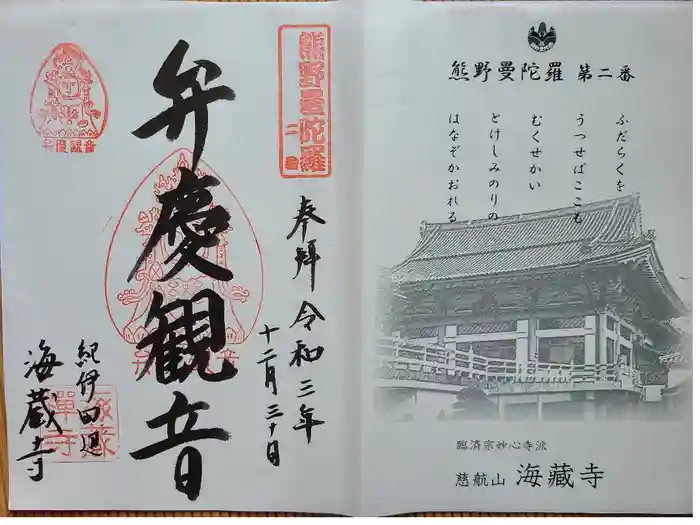 熊野曼陀羅 第二番
ふだらくを
うつせばここも
むくせかい
とけしみのりの
はなぞかおれる
臨済宗妙心寺派
慈航山 海藏寺
熊野曼陀羅
二番
奉拝 令和三年
十二月三十日
弁慶観音
弁慶観音
紀伊田辺
海蔵寺